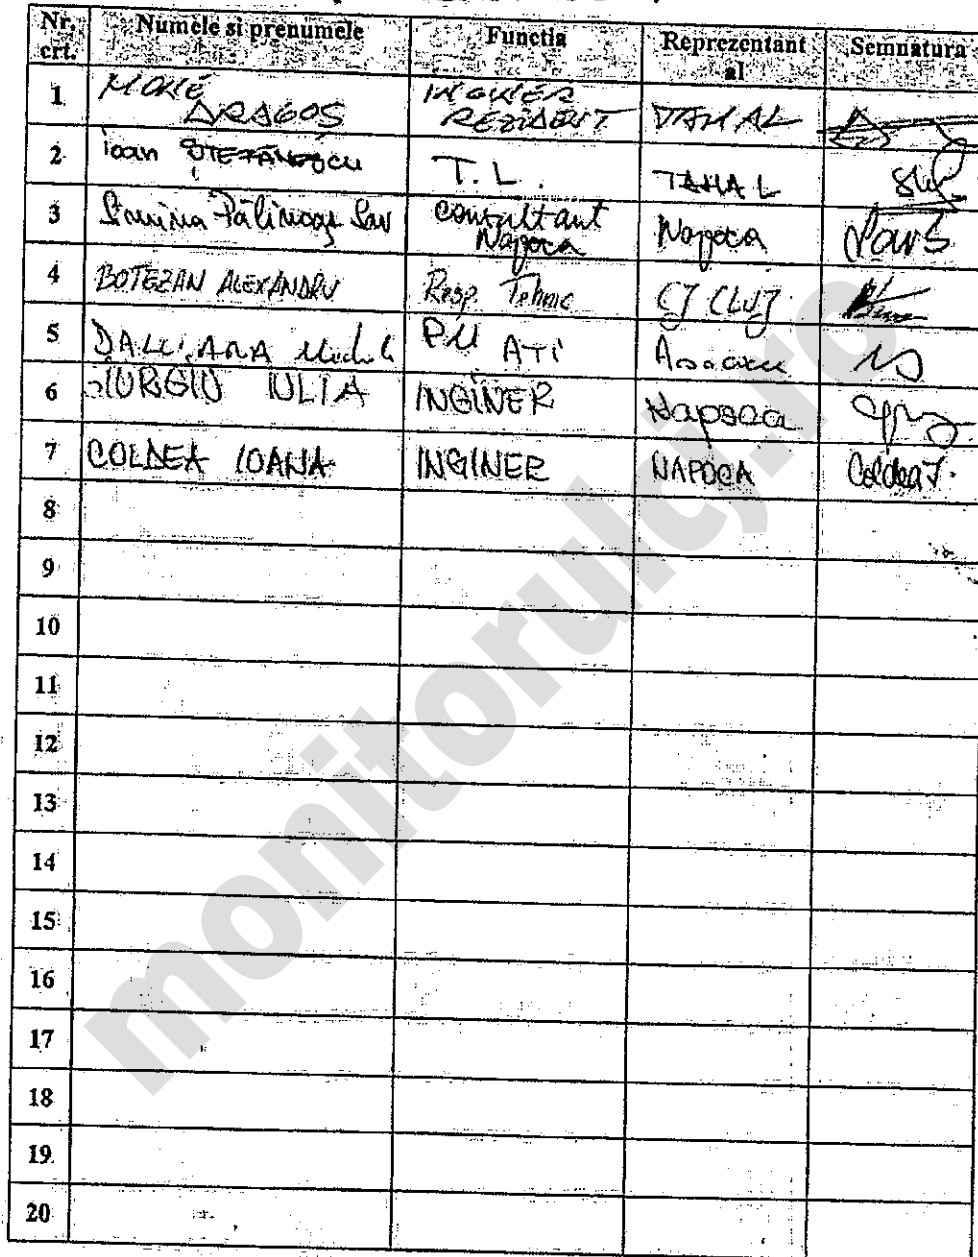 Nr. crt. Numele si prenumele Functia Reprezentant al Semnatura
1 DRAGOS INGINER REZIDENT TAHAL
2 Ioan STEFANESCU T.L. TAHAL
3 consultant Napoca Napoca
4 BOTEZAN ALEXANDRU Resp. Tehnic CJ CLUJ
5 PM ATI
6 GIURGIU IULIA INGINER Napoca
7 COLDEA IOANA INGINER NAPOCA Coldea I.
8
9
10
11
12
13
14
15
16
17
18
19
20
monitorulcj.ro